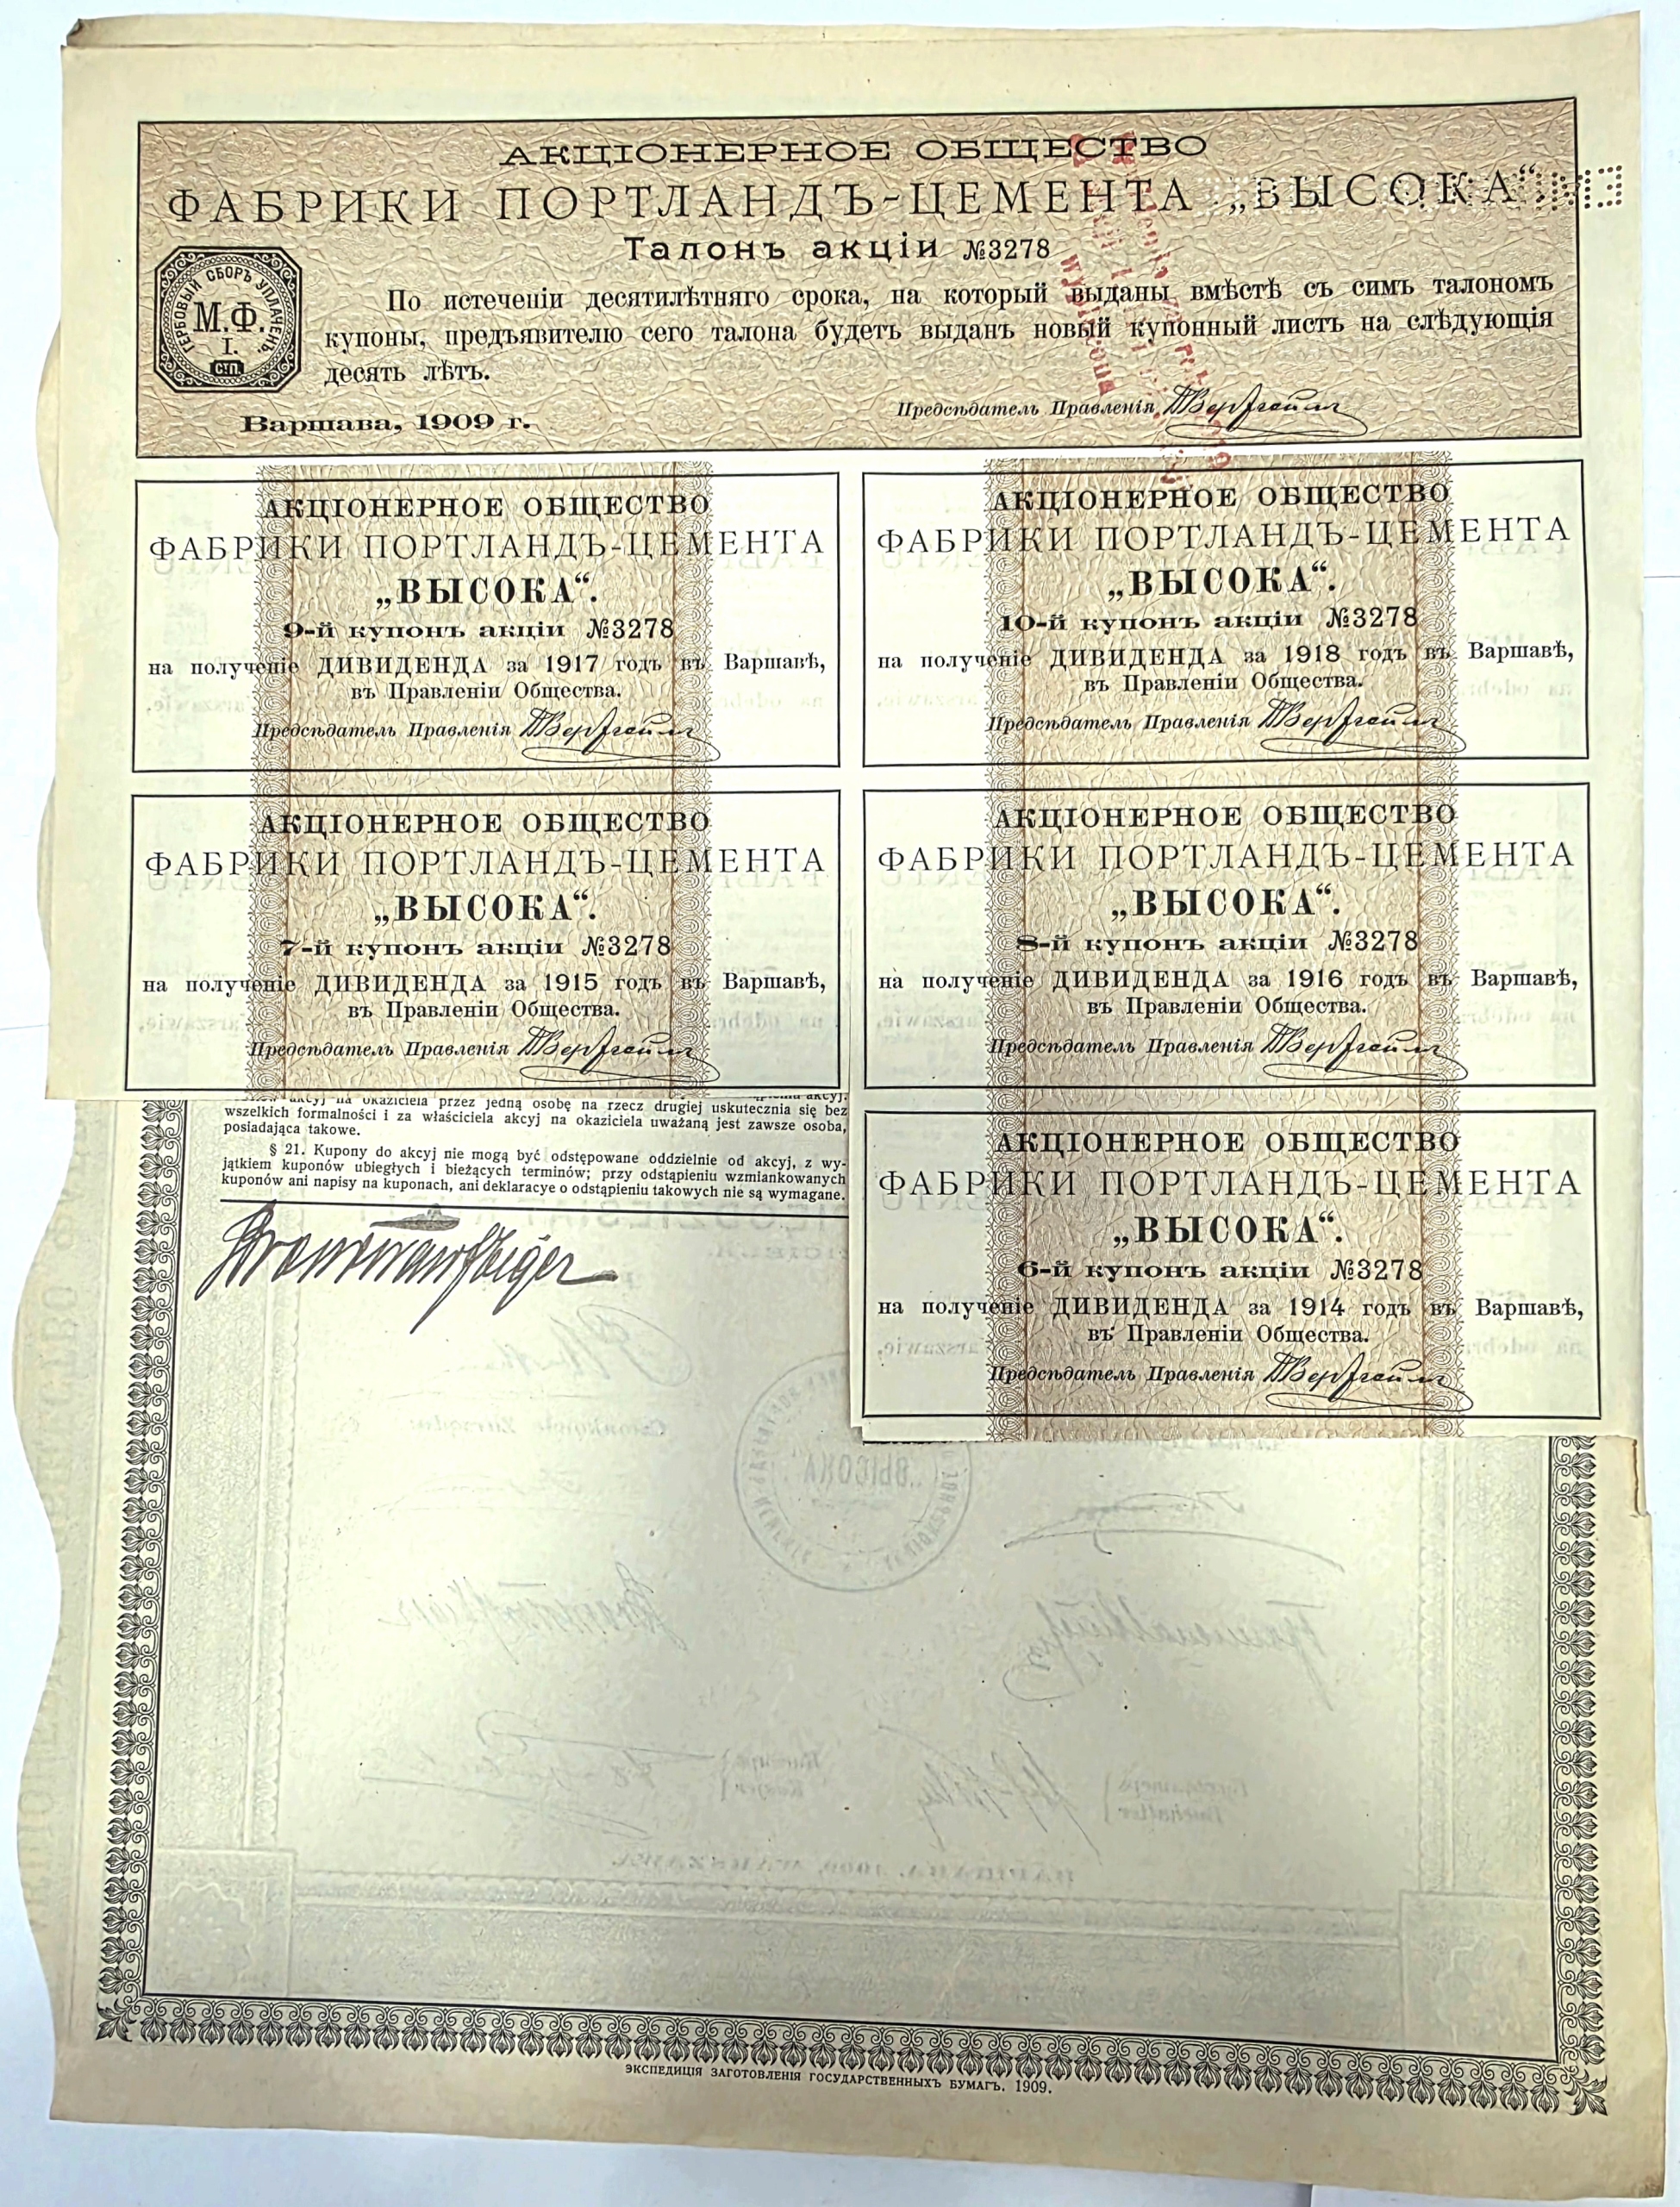 АКЦІОНЕРНОЕ ОБЩЕСТВО
ФАБРИКИ ПОРТЛАНДЪ-ЦЕМЕНТА „ВЫСОКА“
Талонъ акціи №3278
ГЕРБОВЫЙ СБОРЪ УПЛАЧЕНЪ.
М.Ф.
I.
С.П.
По истеченіи десятилѣтняго срока, на который выданы вмѣстѣ съ симъ талономъ
купоны, предъявителю сего талона будетъ выданъ новый купонный листъ на слѣдующія
десять лѣтъ.
Варшава, 1909 г.
Предсѣдатель Правленія
АКЦІОНЕРНОЕ ОБЩЕСТВО
ФАБРИКИ ПОРТЛАНДЪ-ЦЕМЕНТА
„ВЫСОКА“.
9-й купонъ акціи №3278
на полученіе ДИВИДЕНДА за 1917 годъ въ Варшавѣ,
въ Правленіи Общества.
Предсѣдатель Правленія
АКЦІОНЕРНОЕ ОБЩЕСТВО
ФАБРИКИ ПОРТЛАНДЪ-ЦЕМЕНТА
„ВЫСОКА“.
10-й купонъ акціи №3278
на полученіе ДИВИДЕНДА за 1918 годъ въ Варшавѣ,
въ Правленіи Общества.
Предсѣдатель Правленія
АКЦІОНЕРНОЕ ОБЩЕСТВО
ФАБРИКИ ПОРТЛАНДЪ-ЦЕМЕНТА
„ВЫСОКА“.
7-й купонъ акціи №3278
на полученіе ДИВИДЕНДА за 1915 годъ въ Варшавѣ,
въ Правленіи Общества.
Предсѣдатель Правленія
АКЦІОНЕРНОЕ ОБЩЕСТВО
ФАБРИКИ ПОРТЛАНДЪ-ЦЕМЕНТА
„ВЫСОКА“.
8-й купонъ акціи №3278
на полученіе ДИВИДЕНДА за 1916 годъ въ Варшавѣ,
въ Правленіи Общества.
Предсѣдатель Правленія
akcyj na okaziciela przez jedną osobę na rzecz drugiej uskutecznia się bez
wszelkich formalności i za właściciela akcyj na okaziciela uważaną jest zawsze osoba,
posiadająca takowe.
§ 21. Kupony do akcyj nie mogą być odstępowane oddzielnie od akcyj, z wy-
jątkiem kuponów ubiegłych i bieżących terminów; przy odstąpieniu wzmiankowanych
kuponów ani napisy na kuponach, ani deklaracye o odstąpieniu takowych nie są wymagane.
АКЦІОНЕРНОЕ ОБЩЕСТВО
ФАБРИКИ ПОРТЛАНДЪ-ЦЕМЕНТА
„ВЫСОКА“.
6-й купонъ акціи №3278
на полученіе ДИВИДЕНДА за 1914 годъ въ Варшавѣ,
въ Правленіи Общества.
Предсѣдатель Правленія
ЭКСПЕДИЦІЯ ЗАГОТОВЛЕНІЯ ГОСУДАРСТВЕННЫХЪ БУМАГЪ. 1909.